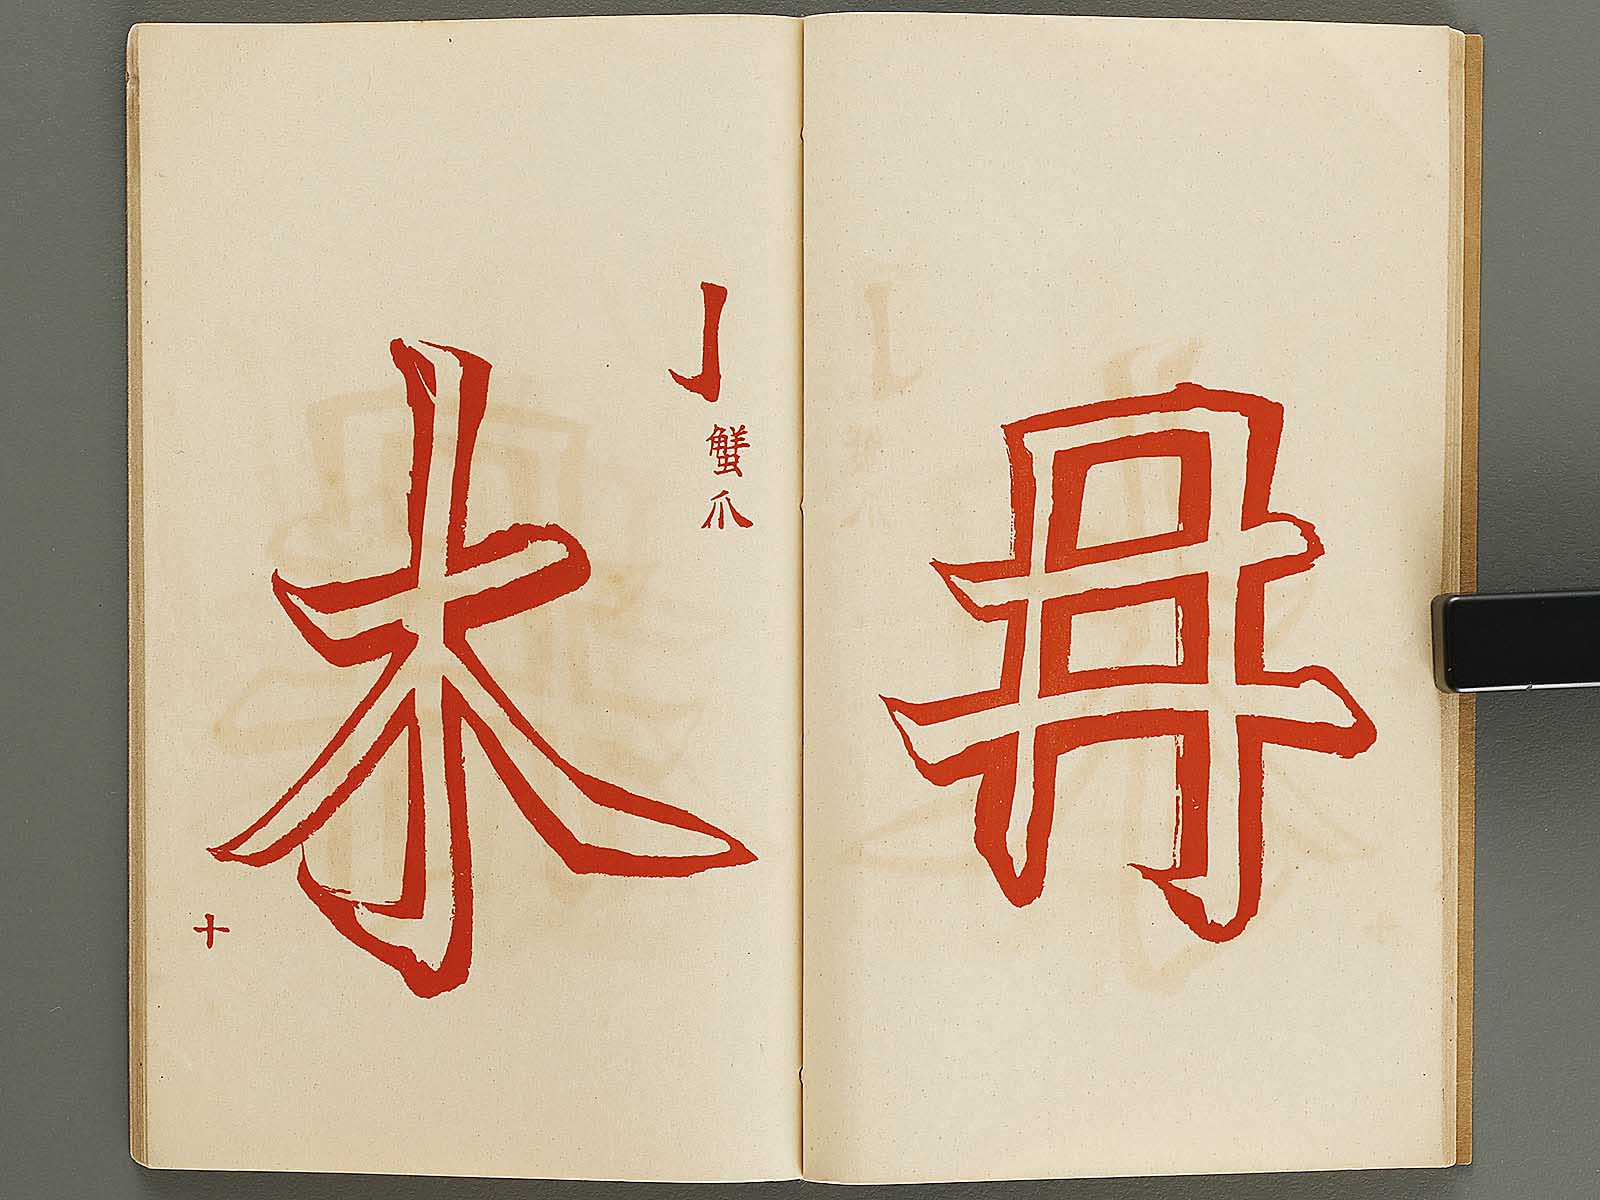 亅
蟹爪
木
十